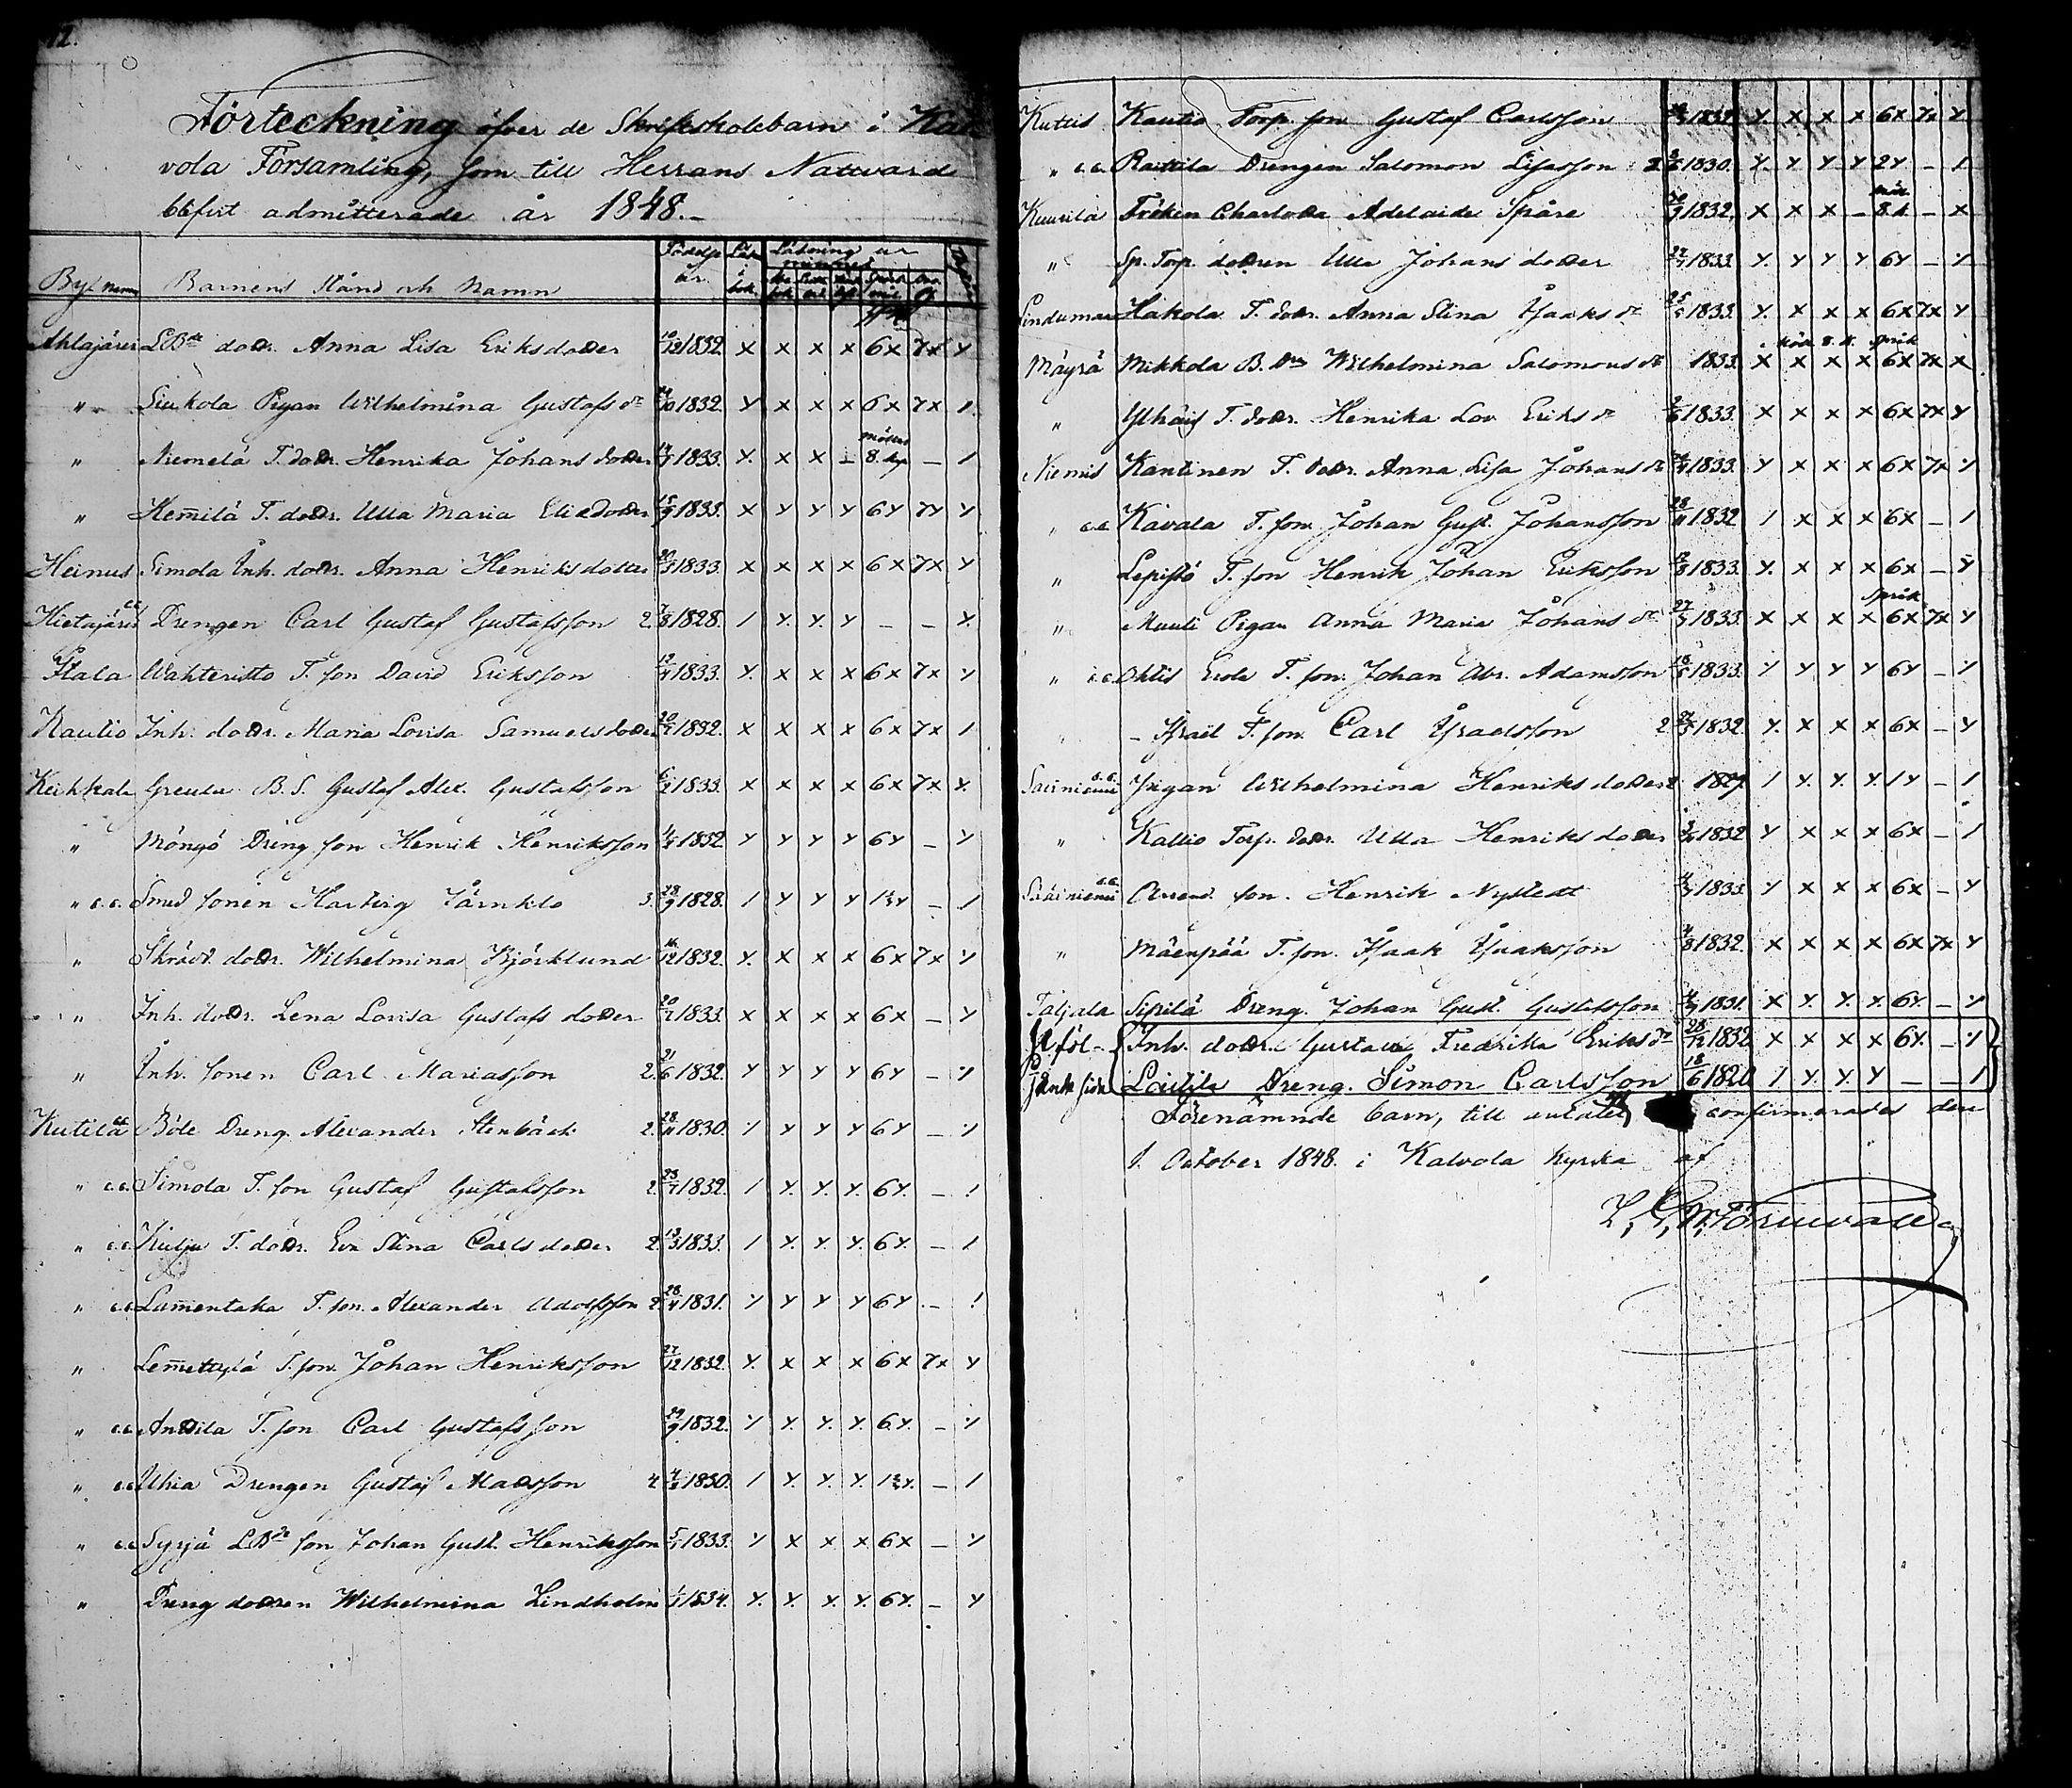 12.
Förteckning öfver de Skriftskolebarn i Kal
vola Församling, som till Herrans Nattvard
blifvit admitterade år 1848.-
By Namn Barnens Stånd och Namn Födelse år Läs. i bok.
Ahlajärvi LBde dottr. Anna Lisa Eriksdotter 10/12 1832. x x x x 6x 7x y
" Liukola Pigan Wilhelmina Gustafs dr /10 1832. y x x x 6x 7x 1
" Niemelä T. dottr. Henrika Johans dotter 1833. y. x x - 8. - 1
" Hemilä T. dottr. Ulla Maria Eliedotter 15/9 1833. x y y y 6y 7y y
Heinus Simola Inh. dottr. Anna Henriksdotter 20/3 1833. x x x x 6x 7x y
Hietajärvi Drengen Carl Gustaf Gustafsson 2. 7/8 1828. 1 y. y. y - - y.
Itala Wahteristo T. son David Eriksson 13/4 1833. y. x x x 6x 7x y
Rautio Inh. dottr. Maria Lovisa Samuelsdotter 1832. x x x x 6x 7x 1
Keikkala Greula B. S. Gustaf Alex. Gustafsson 6/2 1833. x x x x 6x 7x y.
" Möngö Dreng son Henrik Henriksson 1832 y y y y 6y - y
" c.c. Smed sonen Hartvig Järnklo 3. 28/9 1828. 1 y y y 1½y - 1
" Skrädd. dottr. Wilhelmina Björklund 16/12 1832. y. x x x 6x 7x y
" Inh. dottr. Lena Lovisa Gustafs dotter 20/7 1833. x x x x 6x - y
" Inh. sonen Carl Mariasson 2. 21/6 1832. y y y y 6y - y
Kutila Böle Dreng. Alexander Stenbäck 2. 28/11 1830. y y y y 6y - y
" c.c. Simola T. son Gustaf Gustafsson 2. 23/7 1832. 1 y. y. y. 6y. - 1
" c.c. Kulju T. dottr. Eva Stina Carls dotter 2. 13/3 1833. 1 y. y. y. 6y. - 1
" c.c. Lammentaka T. son. Alexander Adolfsson 2. 28/4 1831. y y y y 6y. - 1
" Lemettylä T. son. Johan Henriksson 27/12 1832. y. x x x 6x 7x y
" c.c. Anttila T. son Carl Gustafsson 29/9 1832. y y. y. y. 6y. - y
" c.c. Uhia Drengen Gustaf Mattsson 4 1830. 1 y. y. y. 1½y. - 1
" c.c. Syrjä LBde son Johan Gust. Henriksson 5/1 1833. y x x x 6x - y
" Dreng dottren Wilhelmina Lindholm 1834. y. y. y. y. 6y. - y
Kuttis Kautio Torp. son Gustaf Carlsson 1832 y. x x x 6x 7x y
" c.c. Raittila Drengen Salomon Lisasson 2 1830. y. y y y 2y - 1
Kuurila Fröken Charlotta Adelaide Spåre 20/9 1832, x x x - 8.k - x
" Sp. Torp. dottren Ulla Johans dotter 22/7 1833. y. y y y 6y - y
Hakola T. dottr. Anna Stina Isaaks dr 25/5 1833. y. x x x 6x 7x y
Mäyrä Mikkola B. Dr Wilhelmina Salomons dr 1833. x x x x 6x 7x x
" Ylhäis T. dottr. Henrika Lov. Eriks dr 2/6 1833. x x x x 6x 7x y
Niemis Kantinen T. dottr. Anna Lisa Johans dr 1833. y x x x 6x 7x y
" c.c. Kavala T. son. Johan Gust. Johansson 28/11 1832 1 x x x 6x - 1
" Lepistö T. son Henrik Johan Eriksson 1833. y. x x x 6x - y
" Muuti Pigan Anna Maria Johans dr 27/5 1833. x x x x 6x 7x y
" c.c. Ohlis Erola T. son. Johan Abr. Adamsson 18/5 1833. y y y y 6y - y
- Israel T. son. Carl Israelsson 2 27/5 1832. y. x x x 6x - y
Sarniemi c.c. Pigan Wilhelmina Henriks dotter 2 1827. 1 y. y. y. 1y - 1
" Kallio Torp. dottr. Ulla Henriks dotter 1832 y x x x 6x - 1
Sääriniemi c.c. Arrend. son. Henrik Nystedt 1833. y x x x 6x - y
" Mäenpää T. son. Isaak Isaaksson /8 1832. x x x x 6x 7x y
Taljala Sipilä Dreng. Johan Gust. Gustafsson 1831. x y. y. y. 6y. - y
Inh. dottr. Gustava Fredrika Eriks dr 28/12 1832 x x x x 6y. - y
Laitila Dreng. Simon Carlsson 18/6 1820 1 y. y. y - - 1
Förenämnde barn, till antalet confirmerades den
1. October 1848. i Kalvola Kyrka af